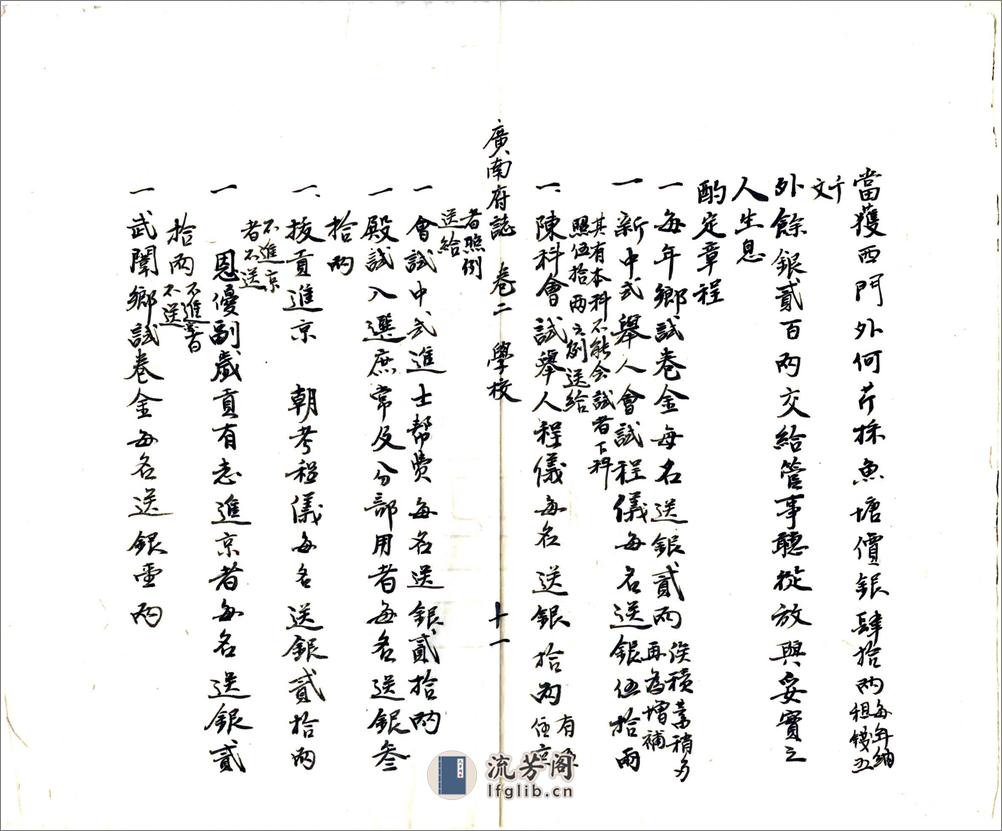 當獲西門外何芹採魚塘價銀肆拾兩每年納租錢五
千文
外餘銀貳百兩交給管事聽從放與妥實之
人生息
酌定章程
一每年鄉試卷金每名送銀貳兩俟積業稍多再為增補
一新中式舉人會試程儀每名送銀伍拾兩
其有本科不能会試者下科照伍拾兩之例送給
一陳科會試舉人程儀每名送銀拾兩有住京
者照例送給
廣南府誌 卷二 學校 十一
一會試中式進士幫費每名送銀貳拾兩
一殿試入選庶常及分部用者每名送銀叁
拾兩
一拔貢進京 朝考程儀每名送銀貳拾兩
不進京者不送
一 恩優副歲貢有志進京者每名送銀貳
拾兩不進京者不送
一武闈鄉試卷金每名送銀壹兩
流芳阁
lfglib.cn